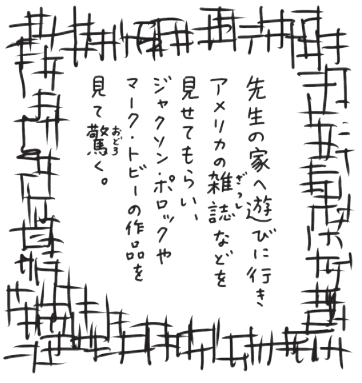 先生の家へ遊びに行き
アメリカの雑誌などを
見せてもらい、
ジャクソン・ポロックや
マーク・トビーの作品を
見て驚く。
ざっし
おどろ